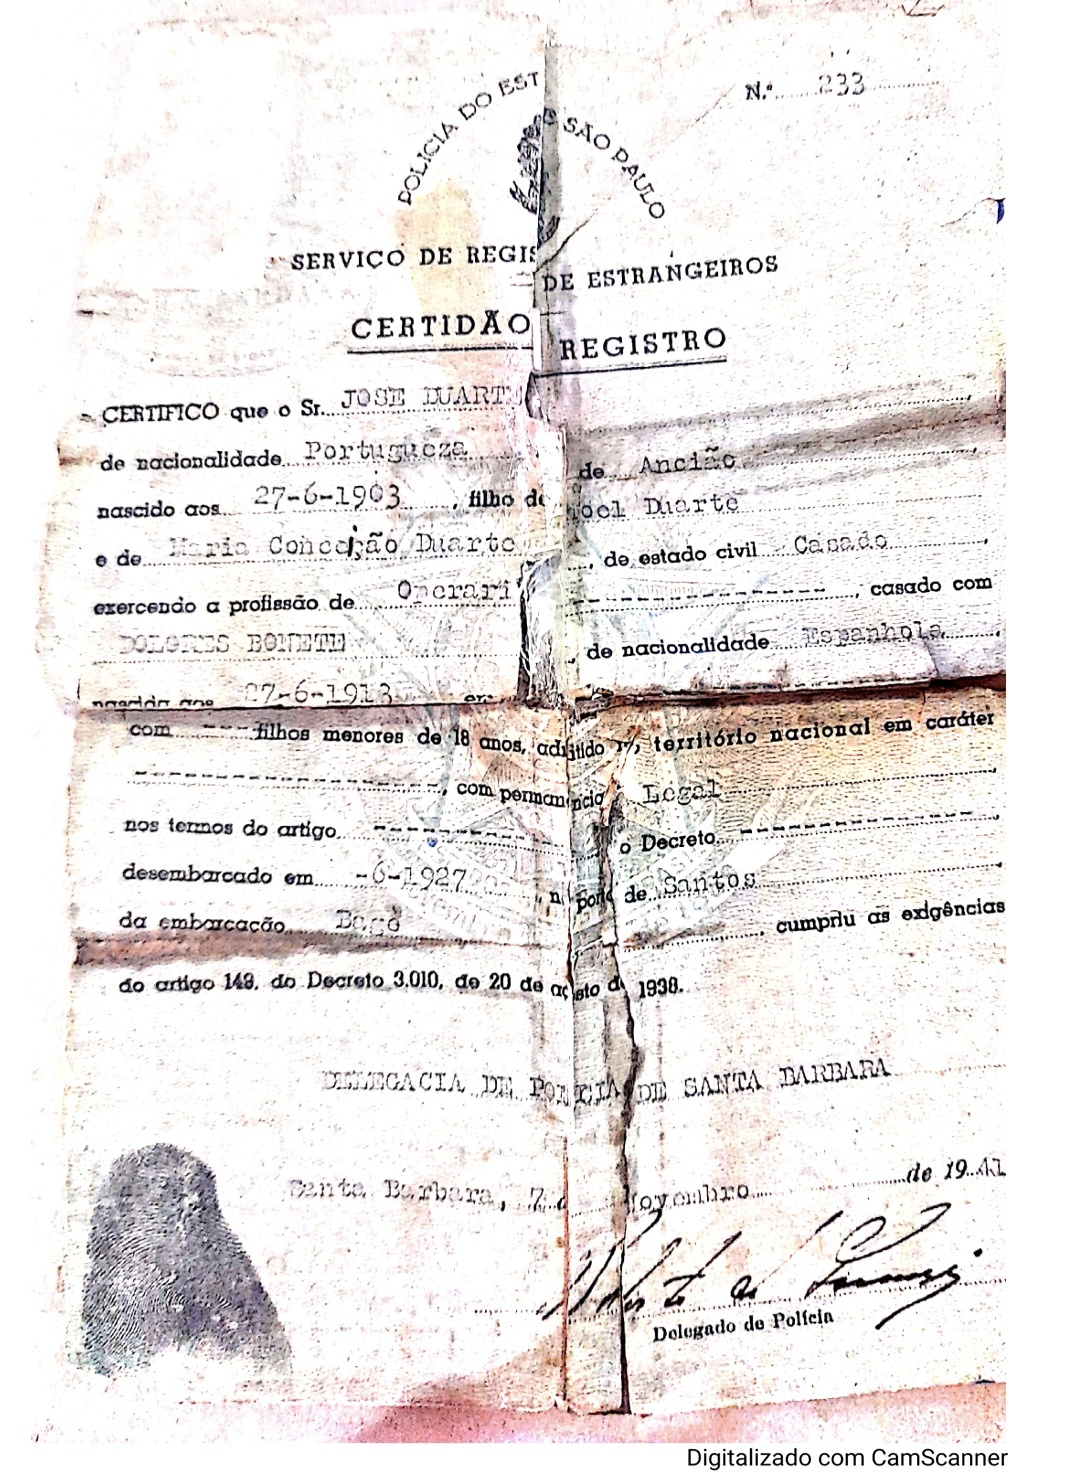 N.º 233
POLICIA DO EST SÃO PAULO
SERVIÇO DE REGIS DE ESTRANGEIROS
CERTIDÃO REGISTRO
CERTIFICO que o Sr. JOSE DUART
de nacionalidade Portugueza de Ancião
nascido aos 27-6-1903, filho de oel Duarte
e de Maria Conceição Duarte, de estado civil Casado,
exercendo a profissão de Operari ----------------, casado com
DOLORES BONETE, de nacionalidade Espanhola,
nascida aos 27-6-1913 em
com --- filhos menores de 18 anos, admitido território nacional em caráter
--------------------, com permanencia Legal
nos termos do artigo ------------ o Decreto ---------------,
desembarcado em -6-1927 n porto de Santos,
da embarcação Bagé, cumpriu as exigências
do artigo 149, do Decreto 3.010, de 20 de agosto d 1938.
DELEGACIA DE POLICIA DE SANTA BARBARA
Santa Barbara, 7 d Novembro de 1941
Delegado de Polícia
Digitalizado com CamScanner